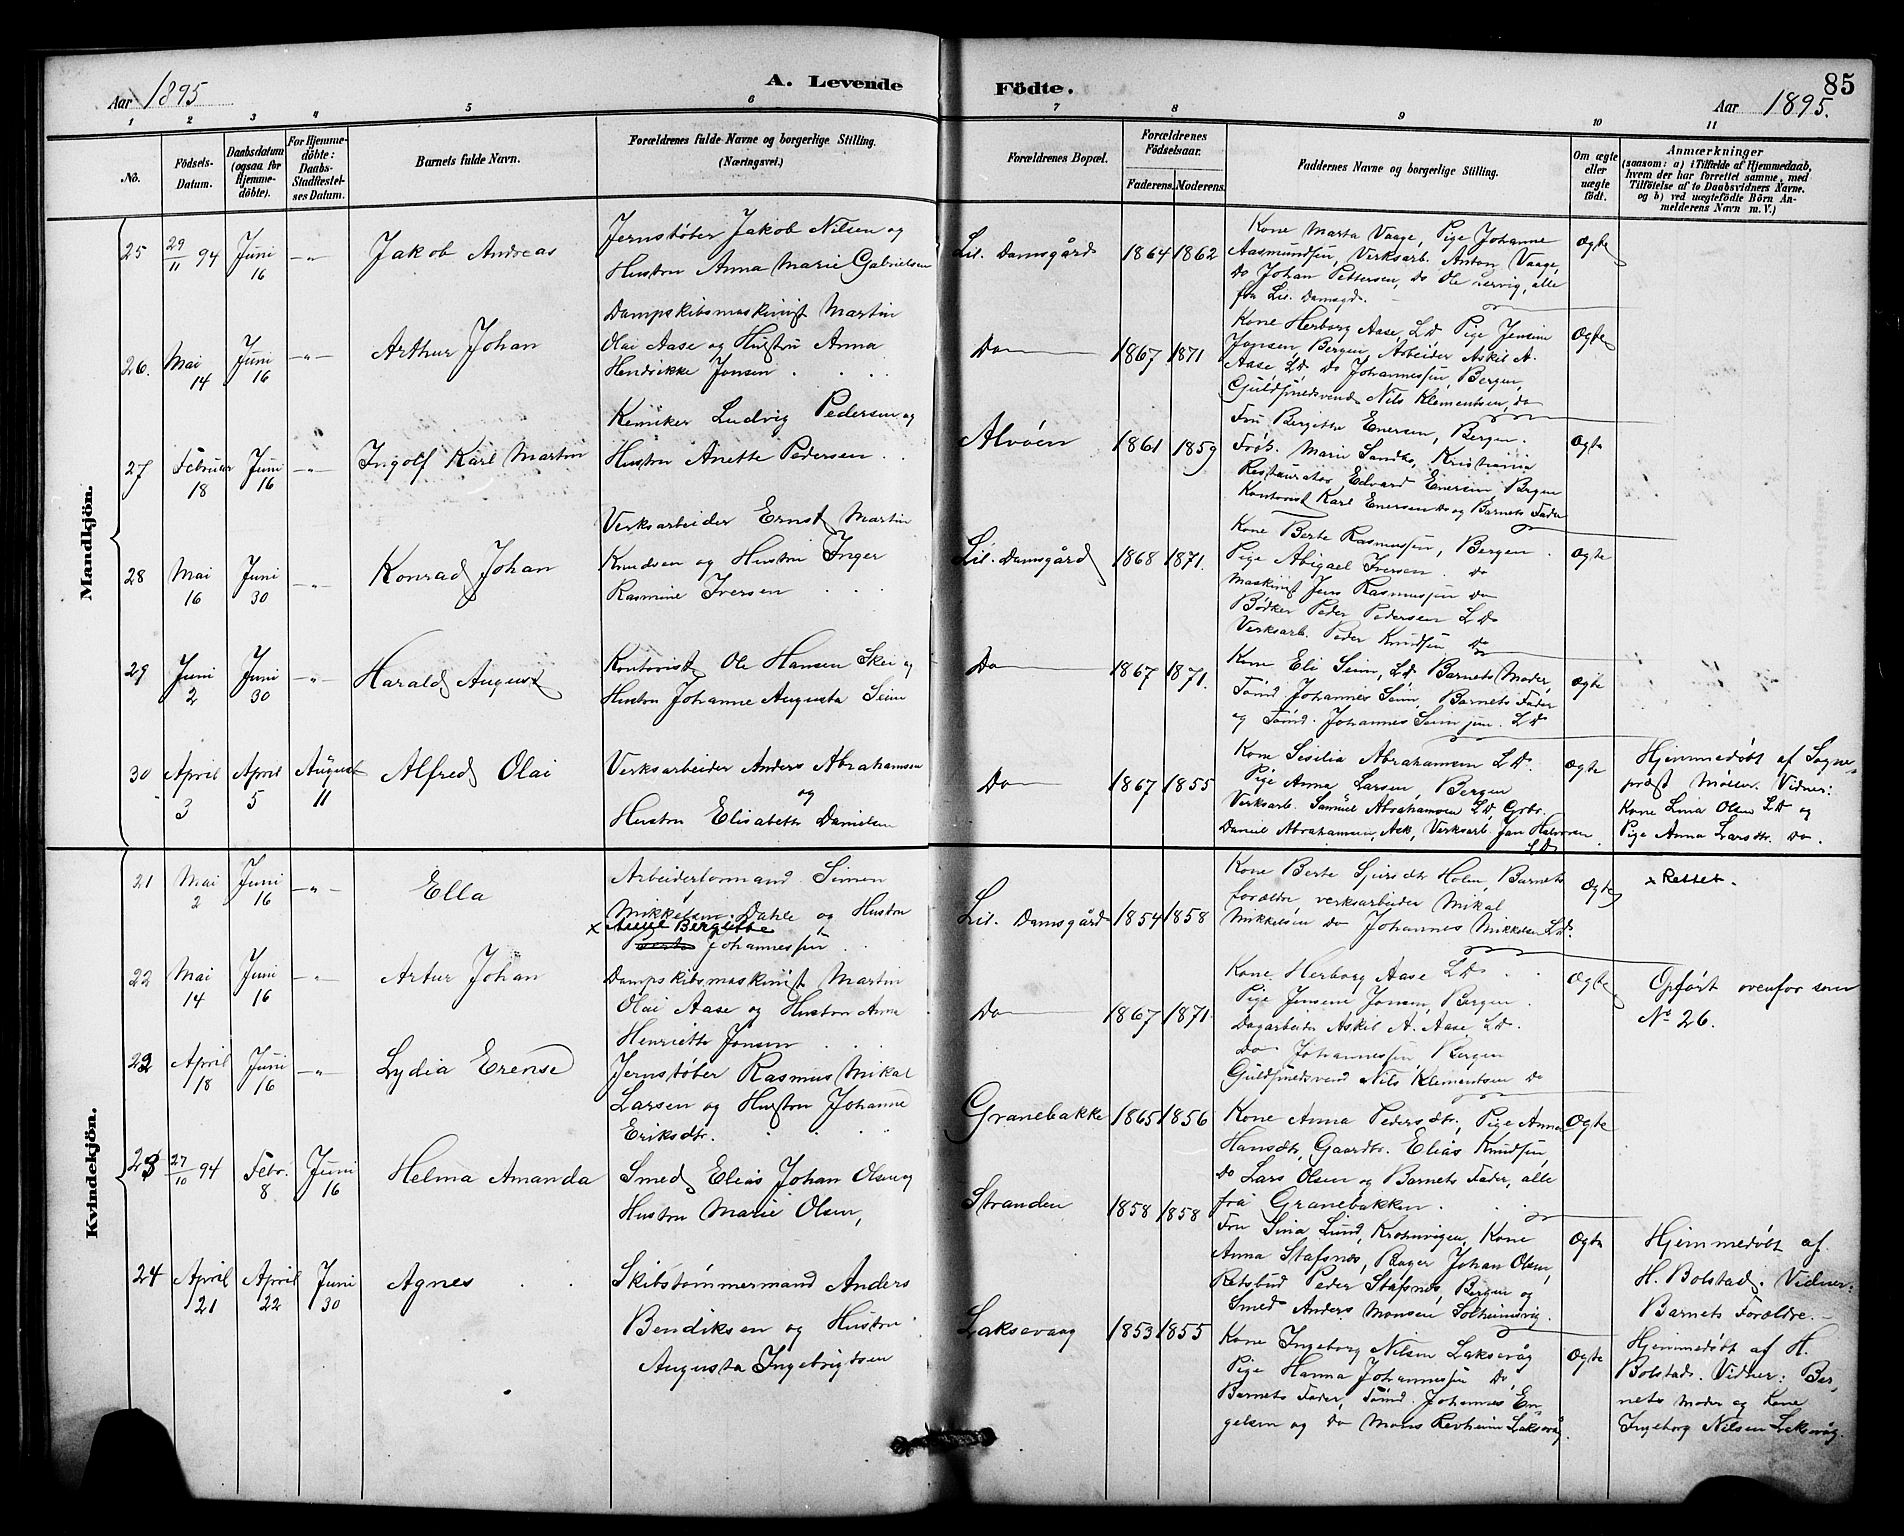 85
Aar 1895
A. Levende
Födte.
Aar 1895.
1 2 3 4 5 6 7 8 9 10 11
No.
Födsels-
Datum.
Daabsdatum
(ogsaa for
Hjemme-
döbte).
For Hjemme-
döbte:
Daabs-
Stadfæstel-
ses Datum.
Barnets fulde Navn.
Forældrenes fulde Navne og borgerlige Stilling.
(Næringsvei.)
Forældrenes Bopæl.
Forældrenes
Födselsaar.
Faderens. Moderens.
Faddernes Navne og borgerlige Stilling.
Om ægte
eller
uægte
født.
Anmærkninger
(saasom: a) i Tilfælde af Hjemmedaab,
hvem der har forrettet samme, med
Tilföielse af to Daabsvidners Navne,
og b) ved uægtefödte Börn An-
melderens Navn m. V.)
Mandkjön.
25 29/11 94 Juni 16 -"- Jakob Andreas
Jernstøber Jakob Nilsen og
Hustru Anna Marie Gabrielsen
Lil. Damsgård 1864 1862
Kone Marta Vaage, Pige Johanne
Aasmundsen, Verksarb. Anton Vaage,
Do Johan Pettersen, Do Ole, alle
fra Lil. Damsgd.
Ægte
26. Mai 14 Juni 16 -"- Arthur Johan
Dampskibsmaskinist Martin
Olai Aase og Hustru Anna
Hendrikke Jonsen
Do 1867 1871
Kone Herborg Aase, LD Pige Jensine
Jonsen, Bergen, Arbeider Askil A.
Aase LD Do Johannessen, Bergen,
Guldsmedsvend Nils Klementsen, do
Ægte
27 Februar 18 Juni 16 -"- Ingolf Karl Martin
Kemiker Ludvig Pedersen og
Hustru Anette Pedersen
Alvøen 1861 1859
Fru Bergitte Enersen, Bergen.
Frøk. Marie Sandbo, Kristiania
Restauratør Edvard Enersen, Bergen
Kontorist Karl Enersen Do og Barnets Fader
Ægte
28 Mai 16 Juni 30 -"- Konrad Johan
Verksarbeider Ernst Martin
Knudsen og Hustru Inger
Rasmine Iversen
Lil. Damsgård 1868 1871.
Kone Berte Rasmussen, Bergen
Pige Abigael Iversen Do
Maskinist Jens Rasmussen Do
Bødker Peder Pedersen LD
Verksarb. Peder Knudsen Do
Ægte
29 Juni 2 Juni 30 -"- Harald August
Kontorist Ole Hansen Skei og
Hustru Johanne Augusta Seim
Do 1867 1871.
Kone Eli Seim, LD, Barnets Moder,
Tømd. Johannes Seim, Barnets Fader
og Tømd. Johannes Seim jun. LD
Ægte
30 April 3 April 5 August 11 Alfred Olai
Verksarbeider Anders Abrahamsen
og
Hustru Elisabeth Danielsen
Do 1867 1855
Kone Sesilia Abrahamsen LD.
Pige Anna Larsen, Bergen
Verksarb. Samuel Abrahamsen LD, Grbr.
Daniel Abrahamsen, Ask, Verksarb. Jan Halvorsen
LD
Ægte
Hjemmedøbt af Sogne-
præst Møller. Vidner:
Kone Lina Olsen LD og
Pige Anna Larsdtr. Do.
Kvindekjön.
21 Mai 2 Juni 16 -"- Ella
Arbeiderformand Simon
Mikkelsen Dahle og Hustru
x Anne Bergitte
Berte Johannessen
Lil. Damsgård 1854 1858
Kone Berte Sjursdtr Holm, Barnets
forældre verksarbeider Mikal
Mikkelsen Do Johannes Mikkelsen LD.
Ægte
x Rettet.
22 Mai 14 Juni 16 -"- Artur Johan
Dampskibsmaskinist Martin
Olai Aase og Hustru Anna
Henriette Jonsen
Do 1867 1871.
Kone Herborg Aase LD
Pige Jensine Jonsen, Bergen
Dagarbeider Askil A. Aase LD.
Do Johannessen, Bergen
Guldsmedsvend Nils Klementsen do
Ægte
Opført ovenfor som
No 26.
22 April 18 Juni 16 -"- Lydia Erense
Jernstøber Rasmus Mikal
Larsen og Hustru Johanne
Eriksdtr.
Granebakke 1865 1856
Kone Anna Pedersdtr, Pige Anna
Hansdtr, Gaardbr. Elias Knudsen,
Do Lars Olsen og Barnets Fader, alle
fra Granebakken.
Ægte
23 27/10 94 Febr. 8 Juni 16 Helma Amanda
Smed Elias Johan Olsen og
Hustru Marie Olsen,
Stranden 1858 1858
Fru Sina Lund, Krohnvigen, Kone
Anna Stafsnes, Bager Johan Olsen,
Retsbud Peder Stafsnes, Bergen og
Smed Anders Monsen Solheimsvig.
Ægte
Hjemmedøbt af
H. Bolstad. Vidner:
Barnets Forældre.
24 April 21 April 22 Juni 30 Agnes
Skibstømmermand Anders
Bendiksen og Hustru
Augusta Ingebrigtsen
Laksevaag 1853 1855
Kone Ingeborg Nilsen Laksevåg
Pige Hanna Johannessen Do,
Barnets Fader, Tømd. Johannes En-
gelsen og Do Mons Revheim Laksevåg.
Ægte
Hjemmedøbt af H.
Bolstad. Vidner: Bar-
nets Moder og Kone
Ingeborg Nilsen Laksevåg.